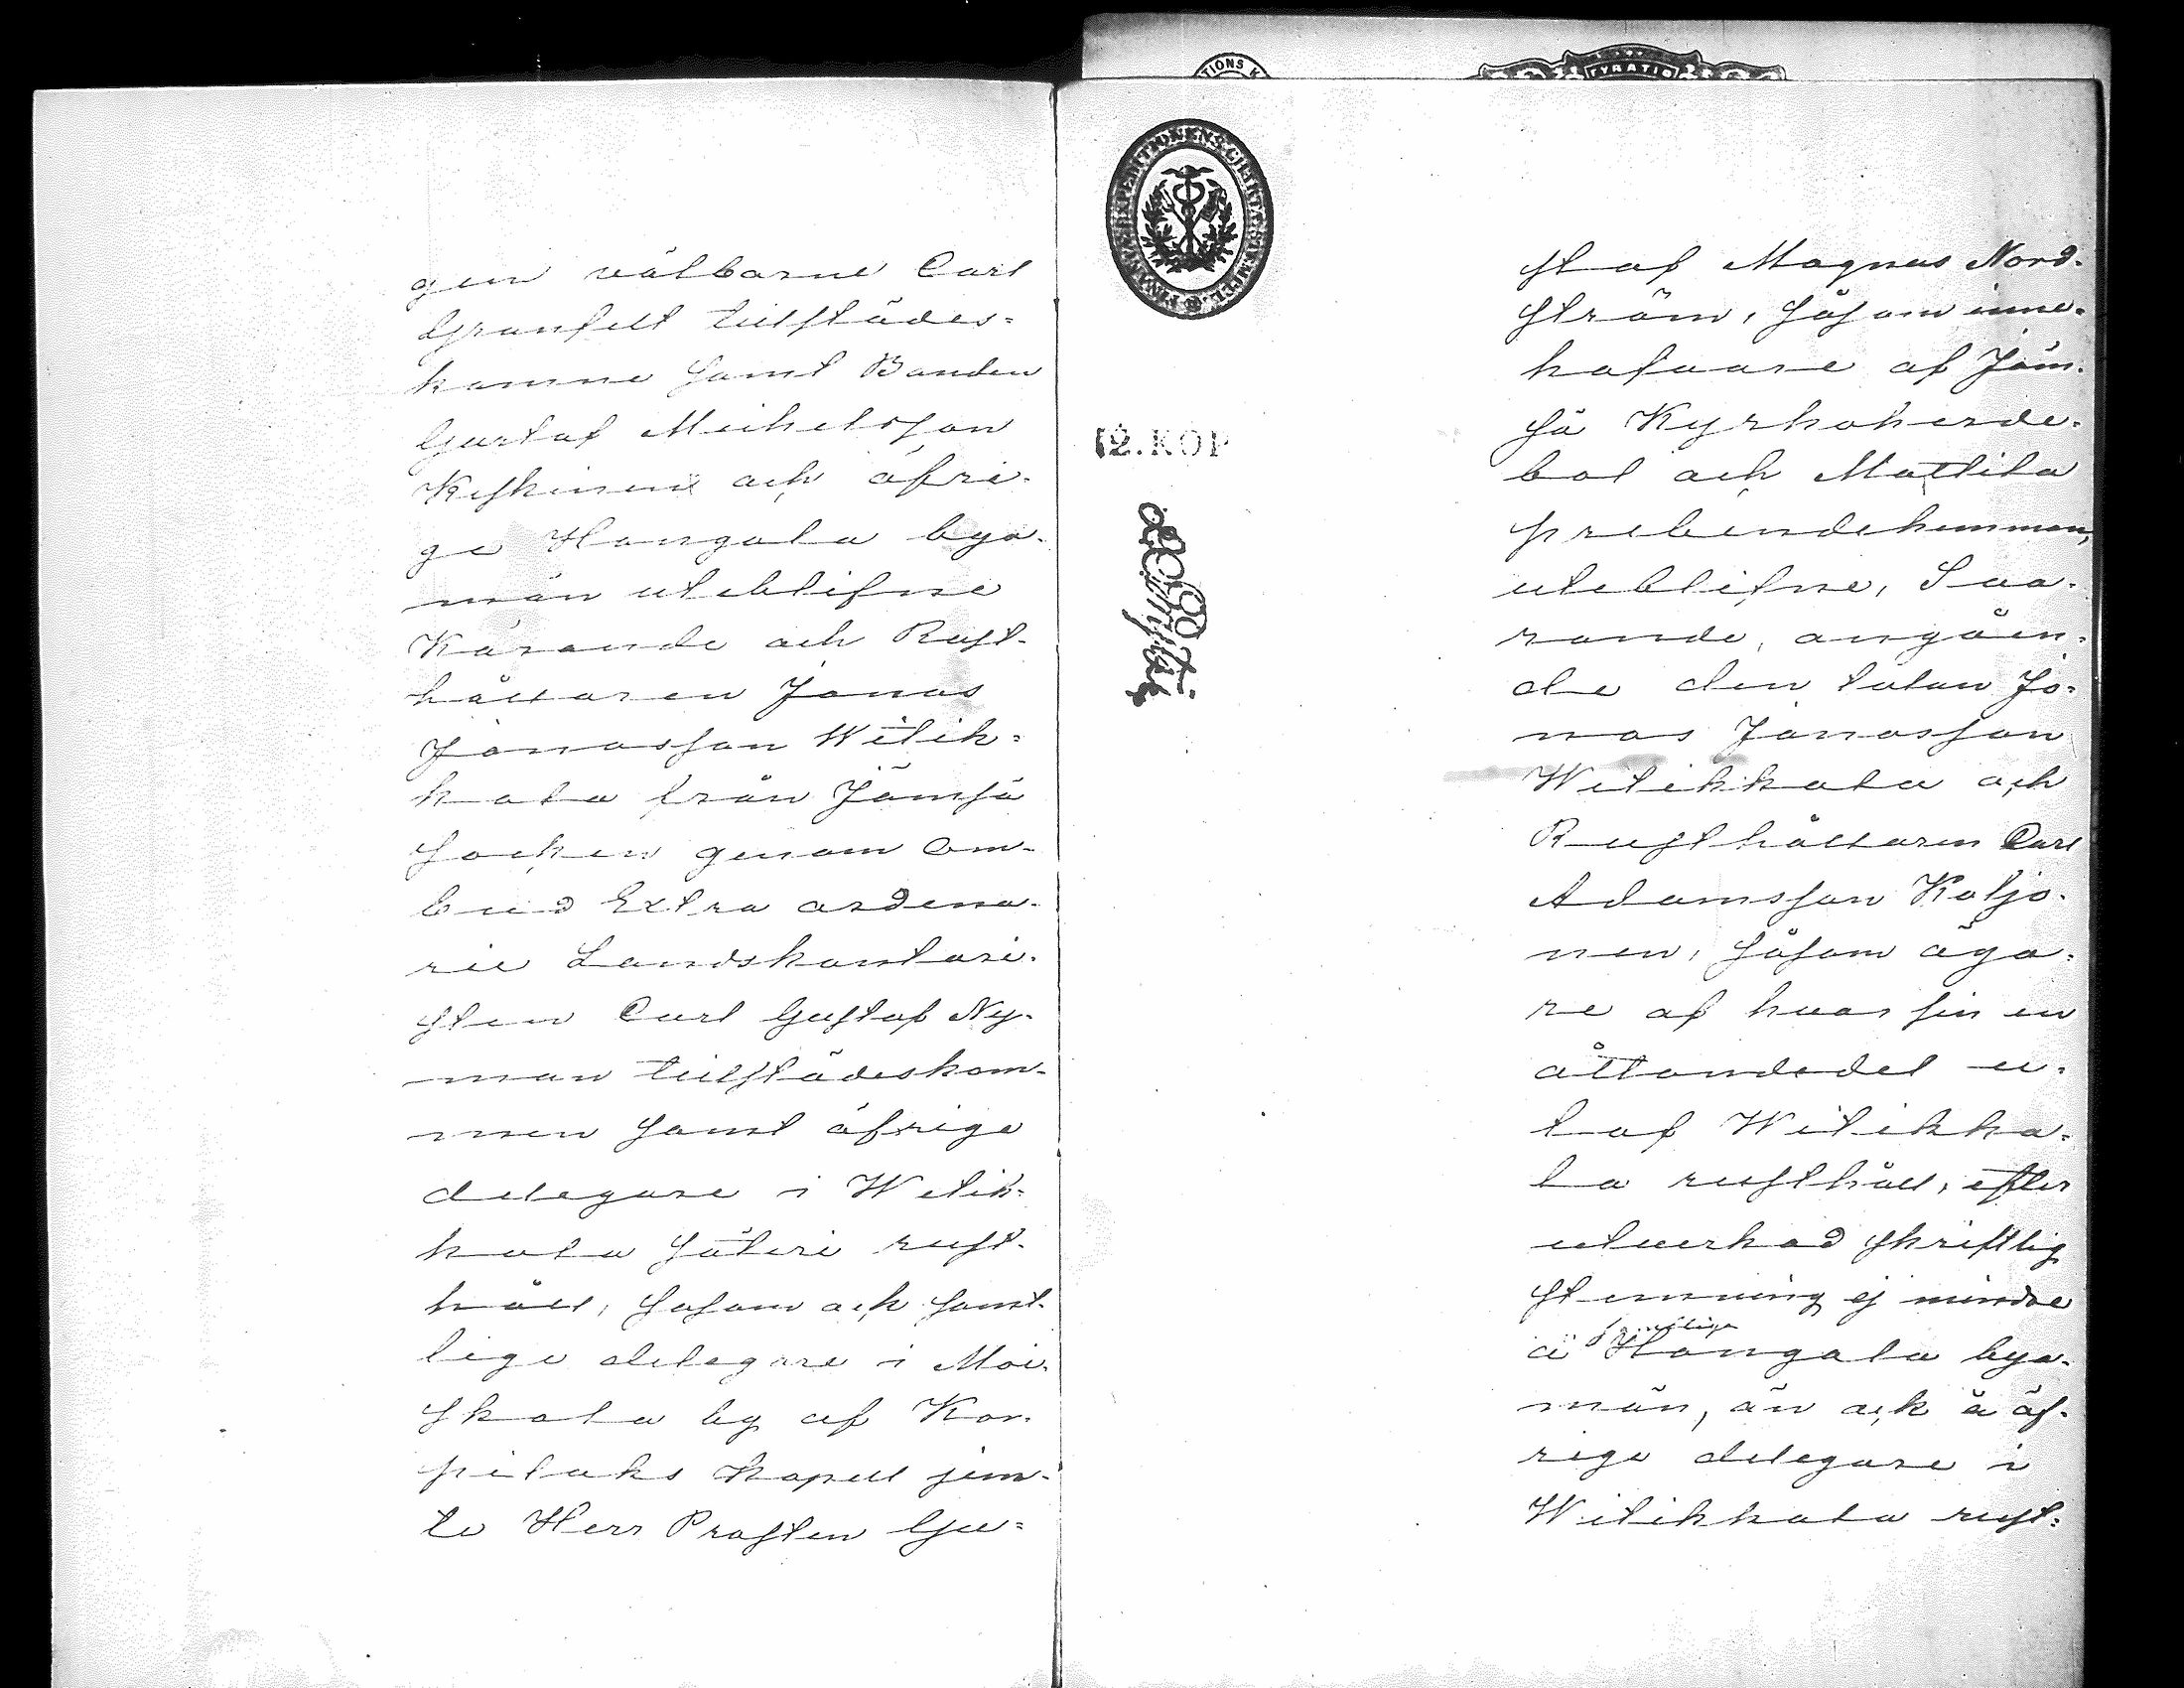 gen välborne Carl
Granfelt tillstädes-
komne samt Bonden
Gustaf Michelsson
Keskinen och öfri-
ge Hangala bya-
män uteblifne
Kärande och Rust-
hållaren Jonas
Jonasson Witik-
kala från Jämsä
Socken genom Om-
bud Extra ordena-
rie Landskontori-
sten Carl Gustaf Ny-
man tillstädeskom-
men samt öfrige
delegare i Witik-
kala Säteri rust-
håll, såsom och samt-
lige delegare i Moi-
skala by af Kor-
pilaks Kapell jem-
te Herr Prosten Gu-
FINANS EXPEDITIONENS CHARTÆ STÄMPEL
12. KOP
staf Magnus Nord-
ström, såsom inne-
hafvare af Jäm-
sä Kyrkoherde-
bol och Mattila
prebendehemman,
uteblifne, Sva-
rande, angåen-
de den talan Jo-
nas Jonasson
Witikkala och
Rusthållaren Carl
Adamsson Koljo-
nen, såsom äga-
re af hvar sin en
åttondedel u-
taf Witikka-
la rusthåll, efter
utverkad skriftlig
stemning ej mindre
å samtlige Hangala bya-
män, än ock å öf-
rige delegare i
Witikkala rust-